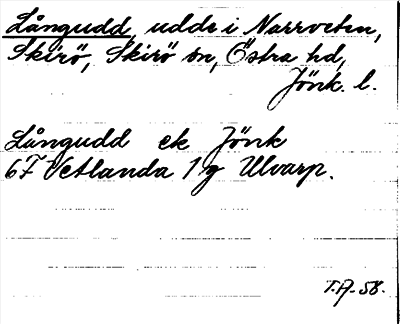 Långudd, udde i Narrveten,
Skirö, Skirö sn, Östra hd,
Jönk. l.
Långudd ek Jönk
6F Vetlanda 1 g Ulvarp.
T.A-58.